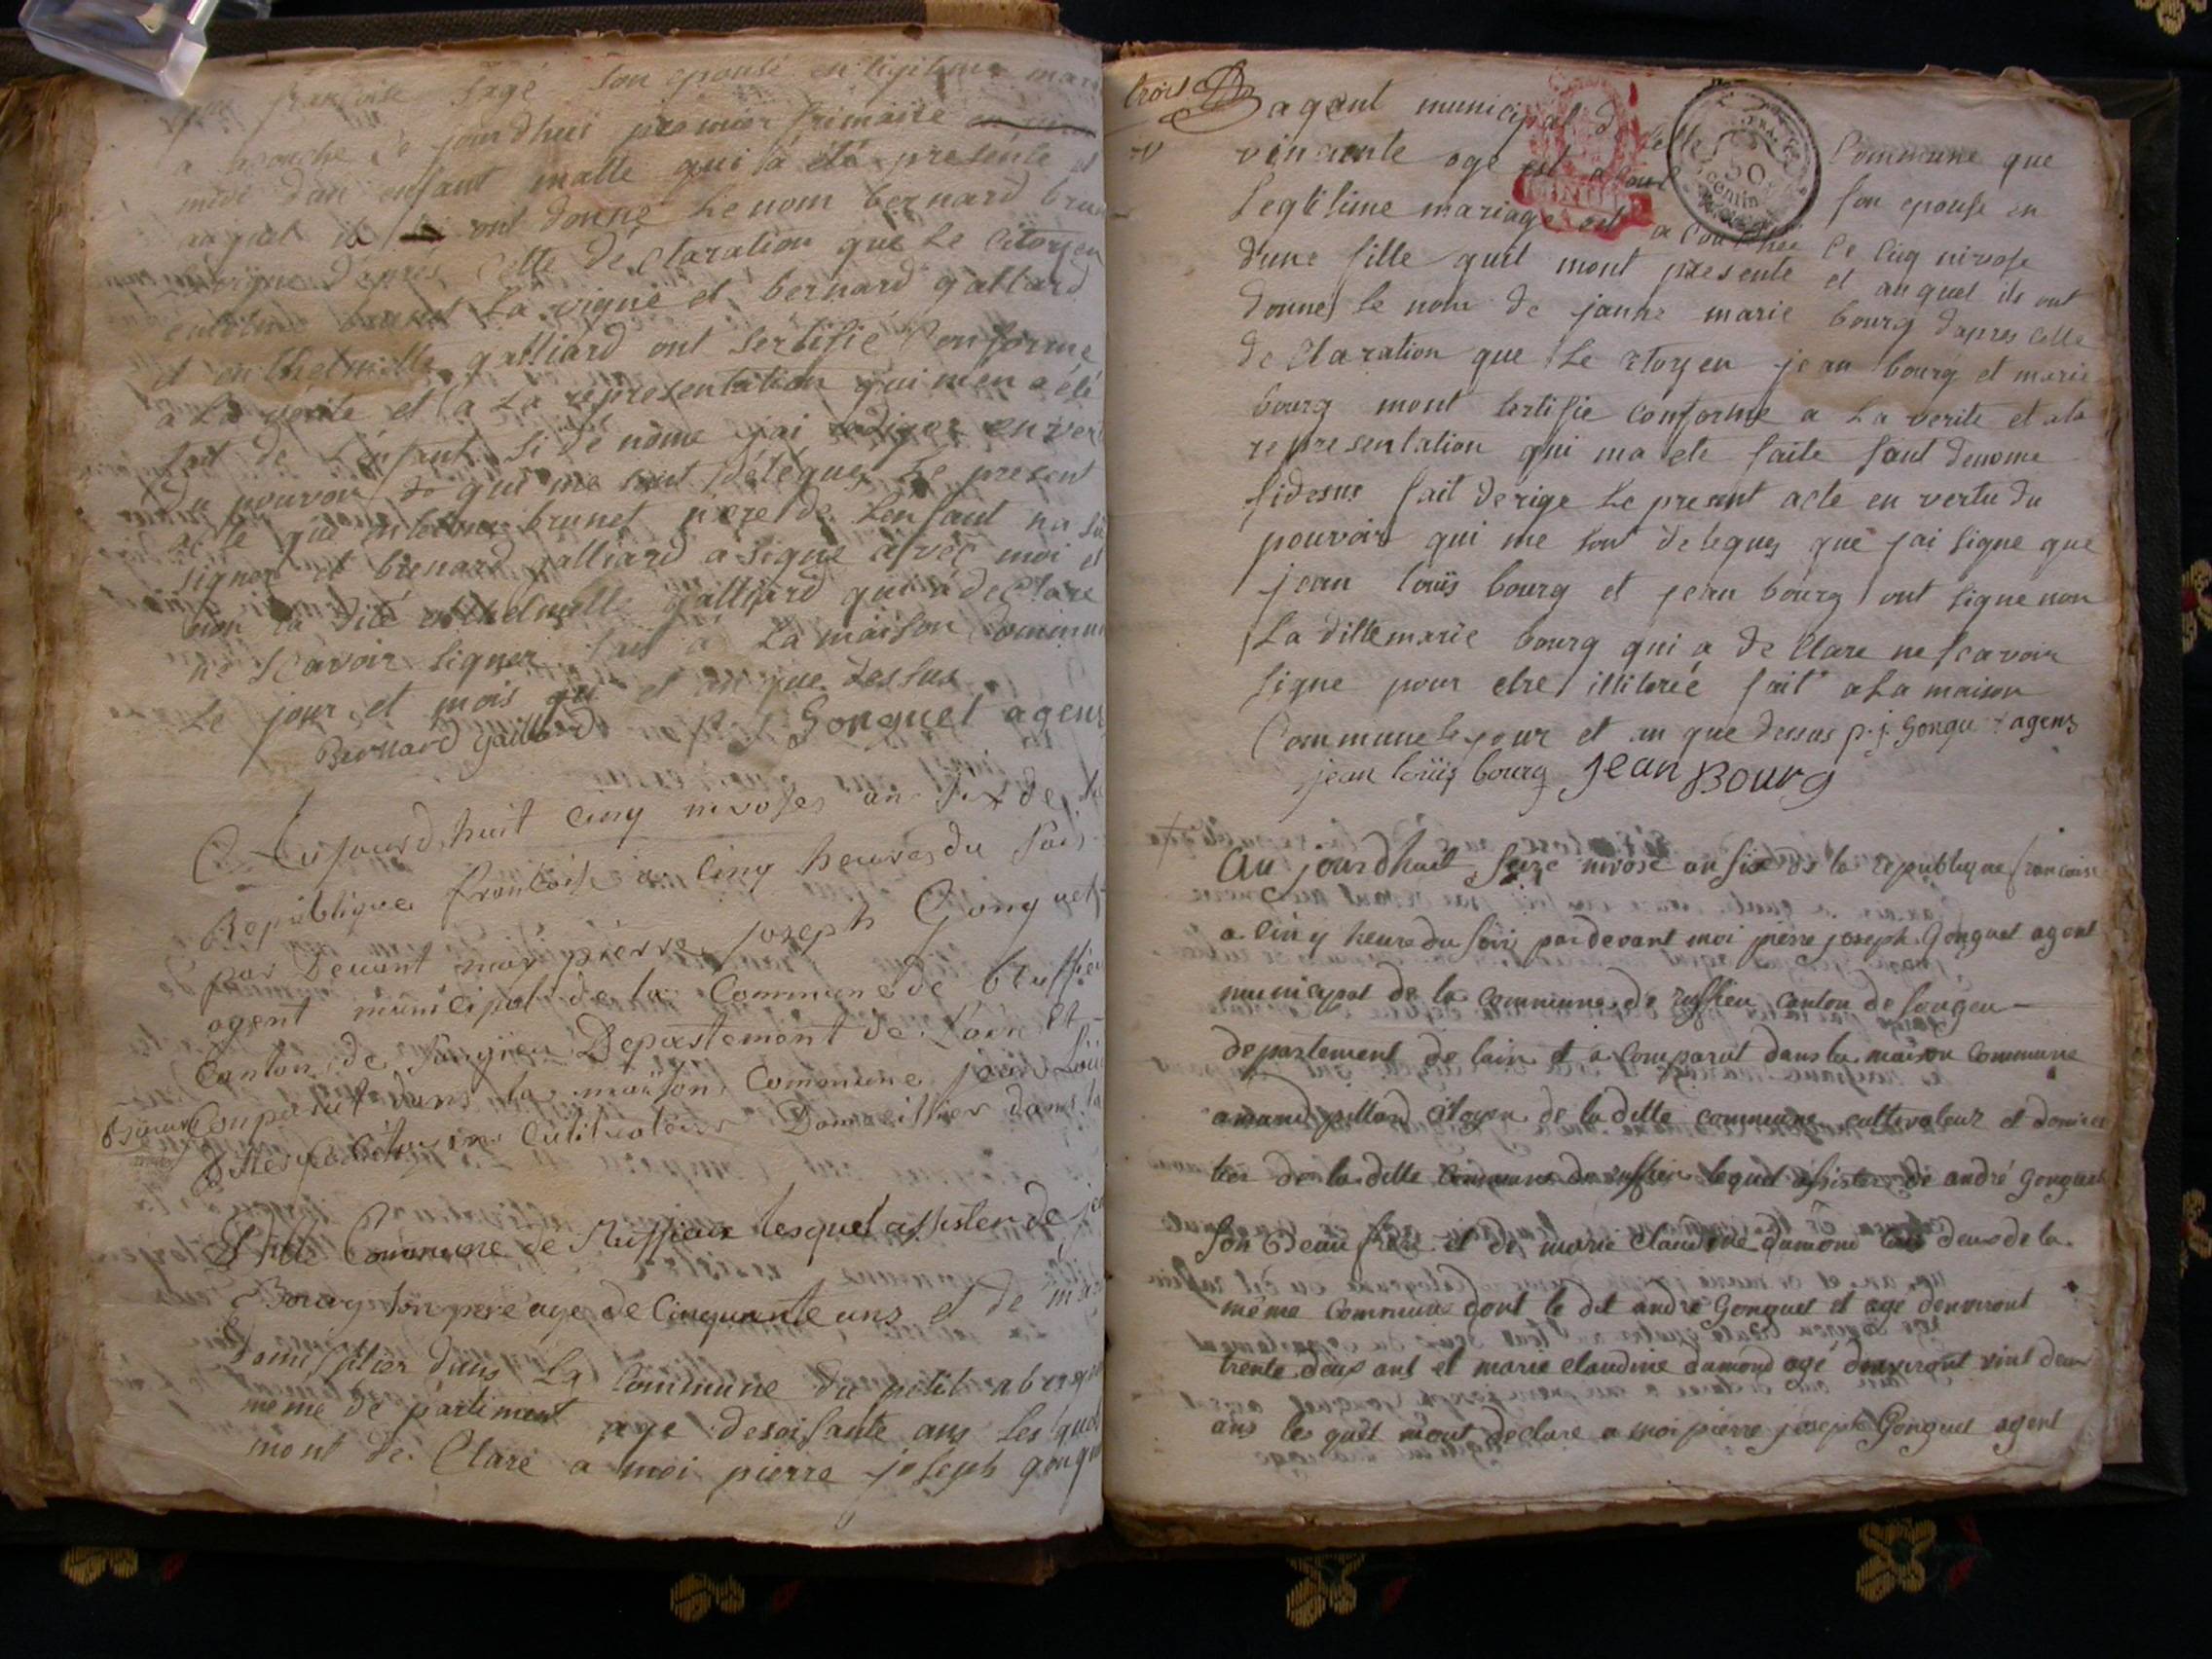 francoise sagé son epouse en legitime mar
a acouche Ce jourdhui premier frimaire
midi dun enfant malle qui a été presenté et
auquel il ont donné Le nom bernard brun
daprès Cette déClaration que Le Citoyen
brunet La vigne et bernard galliard
et galliard ont Sertifié Conforme
a La vérité et a La representation qui men a été
fait de L'enfant Si dé nomé jai rediger en ver
du pouvoir qui me sont délégues Le present
acte que brunet pere de Lenfant na su
signer et bernard galliard a signe avec moi et
non la dite galliard qui a déClare
ne scavoir signer fait a La maison Commun
Le jour et mois et an que dessus
Bernard gaillard p. j. Gonguet agent
Aujourdhuit cinq nivoses an six de la
Republique francoise a cinq heures du soir
par Devant moy pierre joseph Gonguet
agent municipal de la Commune de Ruffieu
Canton de Songieu Departement de Lain et
Bourg Comparut dans la maison Commune jean Loui
Citoyen Cultivateur Domicillier dans la
Ditte Commune de Ruffieu lesquel assister de jea
Bourg son pere age de Cinquante ans et de mar
domicillier dans La Commune du petit aberge
meme dé partement age desoisante ans Les quel
mont de Clare a moi pierre joseph gongu
trois
agant municipal de ditte Commune que
vincente oge son epouse en
Legitime mariage est acouchée Le cinq nivose
dune fille quil mont presente et auquel ils ont
donnes le nom de janne marie bourg dapres cette
de Claration que Le citoyen jean bourg et marie
bourg mont sertifie conforme a La verite et ala
representation qui ma ete faite fant denome
sidesus fait derige Le present acte en vertu du
pouvoir qui me sont delegues que jai signe que
jean louis bourg et jean bourg ont signe non
La ditte marie bourg qui a de Clare ne scavoir
signe pour etre illiterée fait a La maison
Commune le jour et an que dessus p. j. Gonguet agens
jean louis bourg jean Bourg
Au jourdhuit seize nivose an six de la republique francoise
a cinq heure du soir pardevant moi pierre joseph Gonguet agent
municipal de la commune de ruffieu canton de songeu
departement de lain et a comparut dans la maison commune
amand pillard citoyen de la ditte commune cultivateur et domici
lier de la ditte commune de ruffieu lequel assister de andré Gonguet
son beau frere et de marie claudine dumond tous deux de la
même commune dont le dit andré Gonguet et age denviront
trente deux ans et marie claudine dumond agé denviront vint deux
ans les quels mont declare a moi pierre joseph Gonguet agent